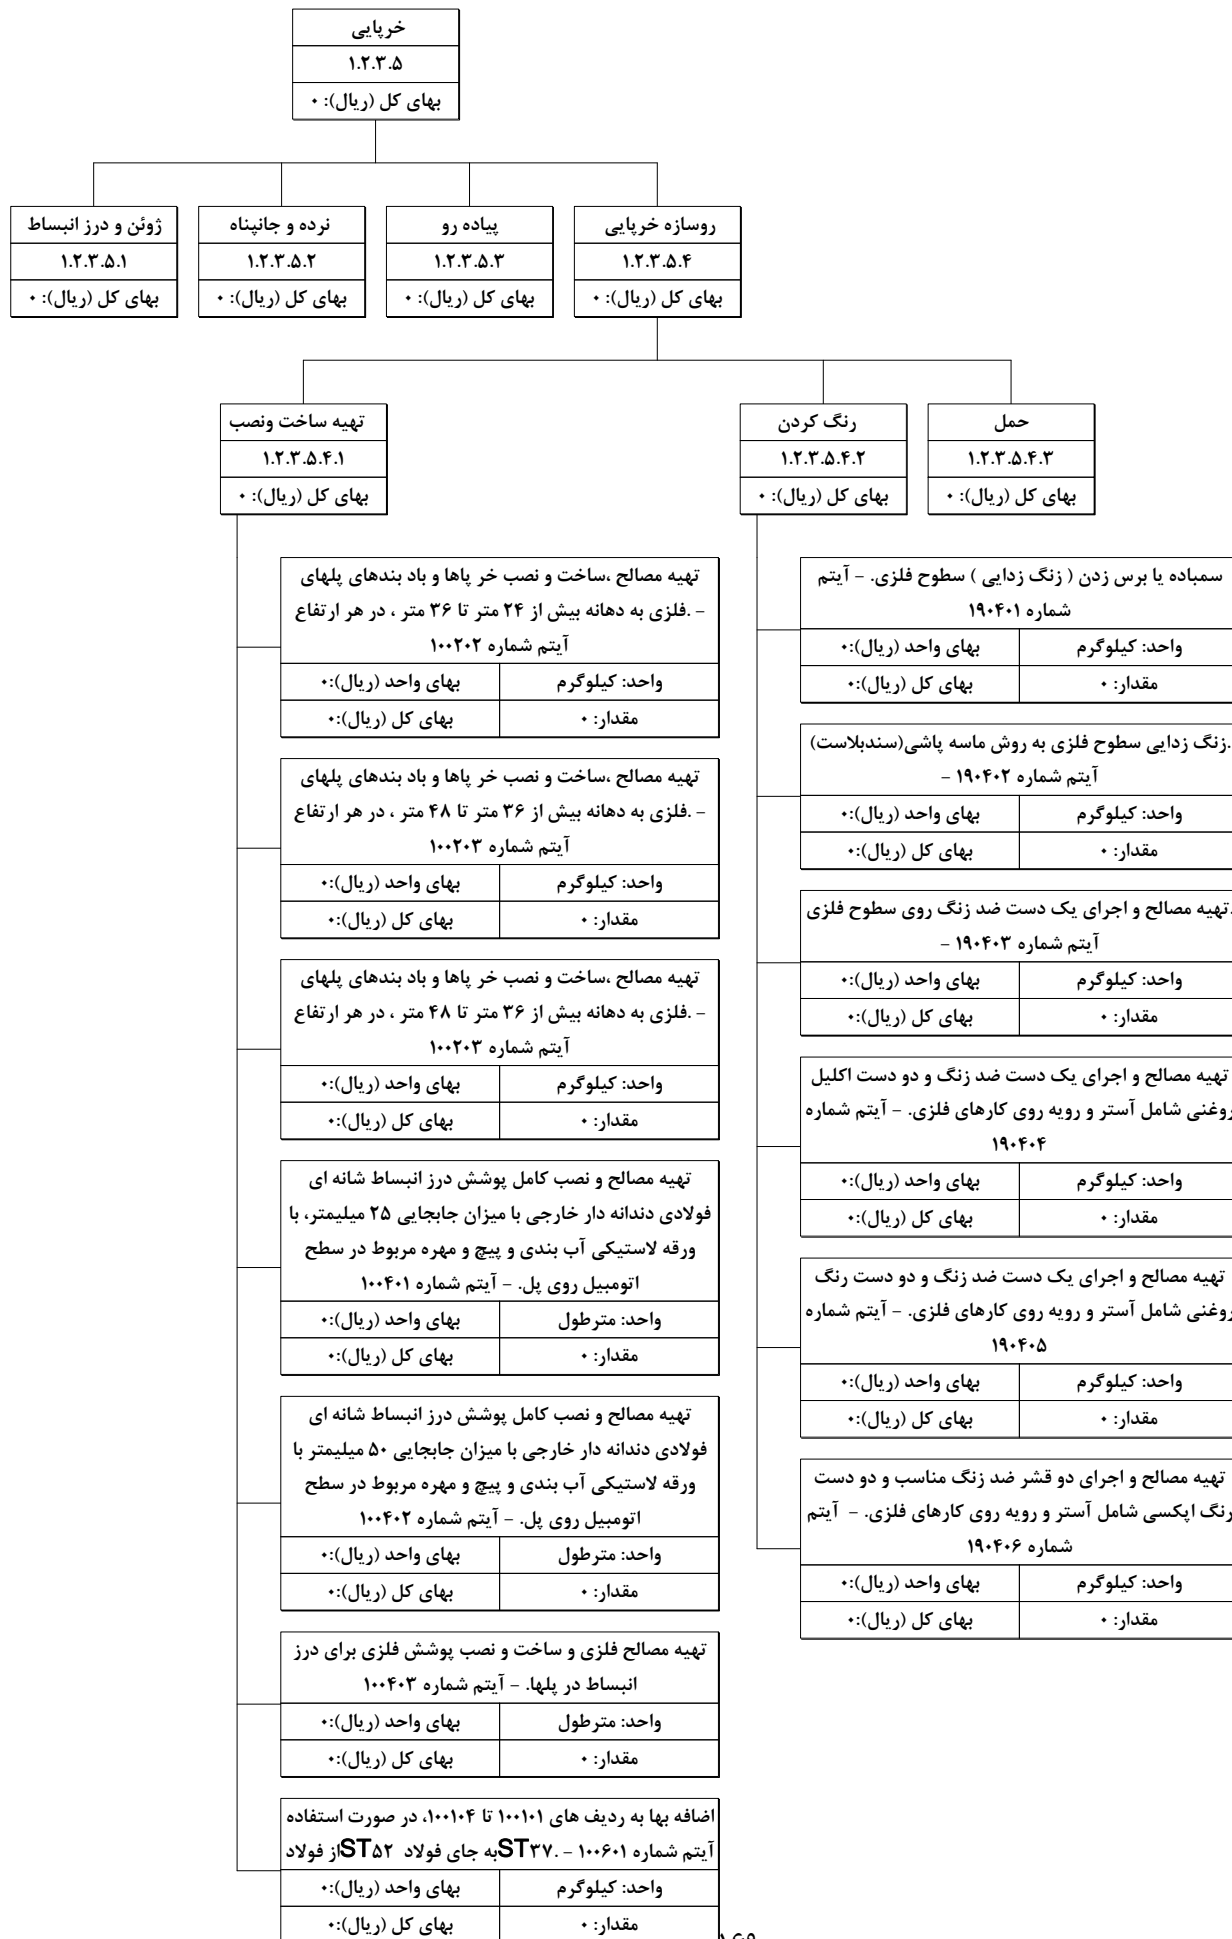 خرپایی
۱.۲.۳.۵
بهای کل (ریال): ۰
روسازه خرپایی
۱.۲.۳.۵.۴
بهای کل (ریال): ۰
پیاده رو
۱.۲.۳.۵.۳
بهای کل (ریال): ۰
نرده و جانپناه
۱.۲.۳.۵.۲
بهای کل (ریال): ۰
ژوئن و درز انبساط
۱.۲.۳.۵.۱
بهای کل (ریال): ۰
حمل
۱.۲.۳.۵.۴.۳
بهای کل (ریال): ۰
رنگ کردن
۱.۲.۳.۵.۴.۲
بهای کل (ریال): ۰
تهیه ساخت ونصب
۱.۲.۳.۵.۴.۱
بهای کل (ریال): ۰
سمباده یا برس زدن ( زنگ زدایی ) سطوح فلزی. - آیتم
شماره ۱۹۰۴۰۱
واحد: کیلوگرم بهای واحد (ریال):۰
مقدار: ۰ بهای کل (ریال):۰
.زنگ زدایی سطوح فلزی به روش ماسه پاشی(سندبلاست)
آیتم شماره ۱۹۰۴۰۲ -
واحد: کیلوگرم بهای واحد (ریال):۰
مقدار: ۰ بهای کل (ریال):۰
.تهیه مصالح و اجرای یک دست ضد زنگ روی سطوح فلزی
آیتم شماره ۱۹۰۴۰۳ -
واحد: کیلوگرم بهای واحد (ریال):۰
مقدار: ۰ بهای کل (ریال):۰
تهیه مصالح و اجرای یک دست ضد زنگ و دو دست اکلیل
روغنی شامل آستر و رویه روی کارهای فلزی. - آیتم شماره
۱۹۰۴۰۴
واحد: کیلوگرم بهای واحد (ریال):۰
مقدار: ۰ بهای کل (ریال):۰
تهیه مصالح و اجرای یک دست ضد زنگ و دو دست رنگ
روغنی شامل آستر و رویه روی کارهای فلزی. - آیتم شماره
۱۹۰۴۰۵
واحد: کیلوگرم بهای واحد (ریال):۰
مقدار: ۰ بهای کل (ریال):۰
تهیه مصالح و اجرای دو قشر ضد زنگ مناسب و دو دست
رنگ اپکسی شامل آستر و رویه روی کارهای فلزی. - آیتم
شماره ۱۹۰۴۰۶
واحد: کیلوگرم بهای واحد (ریال):۰
مقدار: ۰ بهای کل (ریال):۰
تهیه مصالح ،ساخت و نصب خر پاها و باد بندهای پلهای
- .فلزی به دهانه بیش از ۲۴ متر تا ۳۶ متر ، در هر ارتفاع
آیتم شماره ۱۰۰۲۰۲
واحد: کیلوگرم بهای واحد (ریال):۰
مقدار: ۰ بهای کل (ریال):۰
تهیه مصالح ،ساخت و نصب خر پاها و باد بندهای پلهای
- .فلزی به دهانه بیش از ۳۶ متر تا ۴۸ متر ، در هر ارتفاع
آیتم شماره ۱۰۰۲۰۳
واحد: کیلوگرم بهای واحد (ریال):۰
مقدار: ۰ بهای کل (ریال):۰
تهیه مصالح ،ساخت و نصب خر پاها و باد بندهای پلهای
- .فلزی به دهانه بیش از ۳۶ متر تا ۴۸ متر ، در هر ارتفاع
آیتم شماره ۱۰۰۲۰۳
واحد: کیلوگرم بهای واحد (ریال):۰
مقدار: ۰ بهای کل (ریال):۰
تهیه مصالح و نصب کامل پوشش درز انبساط شانه ای
فولادی دندانه دار خارجی با میزان جابجایی ۲۵ میلیمتر، با
ورقه لاستیکی آب بندی و پیچ و مهره مربوط در سطح
اتومبیل روی پل. - آیتم شماره ۱۰۰۴۰۱
واحد: مترطول بهای واحد (ریال):۰
مقدار: ۰ بهای کل (ریال):۰
تهیه مصالح و نصب کامل پوشش درز انبساط شانه ای
فولادی دندانه دار خارجی با میزان جابجایی ۵۰ میلیمتر با
ورقه لاستیکی آب بندی و پیچ و مهره مربوط در سطح
اتومبیل روی پل. - آیتم شماره ۱۰۰۴۰۲
واحد: مترطول بهای واحد (ریال):۰
مقدار: ۰ بهای کل (ریال):۰
تهیه مصالح فلزی و ساخت و نصب پوشش فلزی برای درز
انبساط در پلها. - آیتم شماره ۱۰۰۴۰۳
واحد: مترطول بهای واحد (ریال):۰
مقدار: ۰ بهای کل (ریال):۰
اضافه بها به ردیف های ۱۰۰۱۰۱ تا ۱۰۰۱۰۴، در صورت استفاده
آیتم شماره ۱۰۰۶۰۱ - .ST۳۷به جای فولاد ST۵۲از فولاد
واحد: کیلوگرم بهای واحد (ریال):۰
مقدار: ۰ بهای کل (ریال):۰